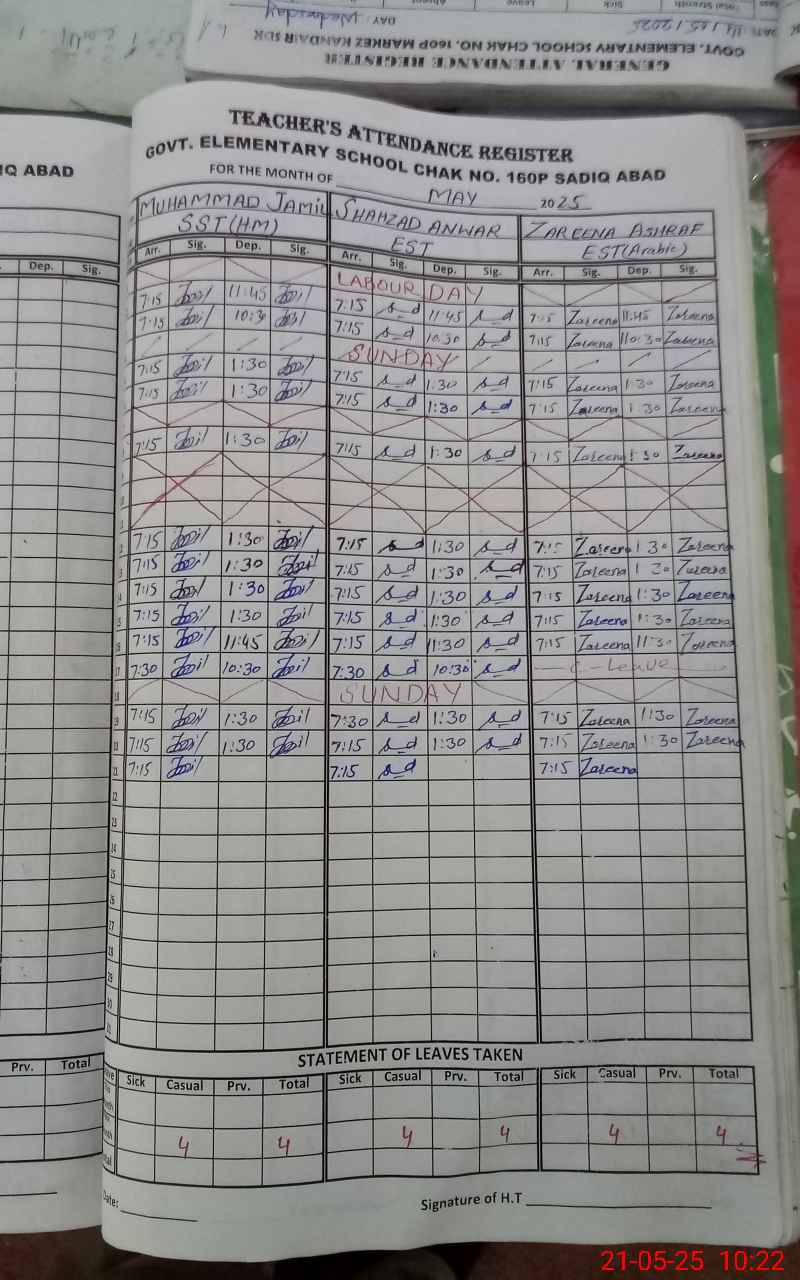 GENERAL ATTENDANCE REGISTER
GOVT. ELEMENTARY SCHOOL CHAK NO. 160P MARKEZ KANDAIR SDK
DAY: Wednesday
Total Strength Sick Leave
IQ ABAD
Dep. Sig.
TEACHER'S ATTENDANCE REGISTER
GOVT. ELEMENTARY SCHOOL CHAK NO. 160P SADIQ ABAD
FOR THE MONTH OF MAY 2025
MUHAMMAD JAMIL SHAHZAD ANWAR ZAREENA ASHRAF
SST(HM) EST EST(Arabic)
Arr. Sig. Dep. Sig. Arr. Sig. Dep. Sig. Arr. Sig. Dep. Sig.
LABOUR DAY
7:15 11:45 7:15 11:45 7:15 Zareena 11:45 Zareena
7:15 10:30 7:15 10:30 7:15 Zareena 10:30 Zareena
SUNDAY
7:15 1:30 7:15 1:30 7:15 Zareena 1:30 Zareena
7:15 1:30 7:15 1:30 7:15 Zareena 1:30 Zareena
7:15 1:30 7:15 1:30 7:15 Zareena 1:30 Zareena
7:15 1:30 7:15 1:30 7:15 Zareena 1:30 Zareena
7:15 1:30 7:15 1:30 7:15 Zareena 1:30 Zareena
7:15 1:30 7:15 1:30 7:15 Zareena 1:30 Zareena
7:15 1:30 7:15 1:30 7:15 Zareena 1:30 Zareena
16 7:15 11:45 7:15 11:30 7:15 Zareena 11:30 Zareena
17 7:30 10:30 7:30 10:30 C-Leave
18 SUNDAY
19 7:15 1:30 7:30 1:30 7:15 Zareena 1:30 Zareena
7:15 1:30 7:15 1:30 7:15 Zareena 1:30 Zareena
21 7:15 7:15 7:15 Zareena
22
23
24
25
26
27
28
29
30
31
STATEMENT OF LEAVES TAKEN
Prv. Total
Sick Casual Prv. Total Sick Casual Prv. Total Sick Casual Prv. Total
4 4 4 4 4 4
Date: Signature of H.T
21-05-25 10:22